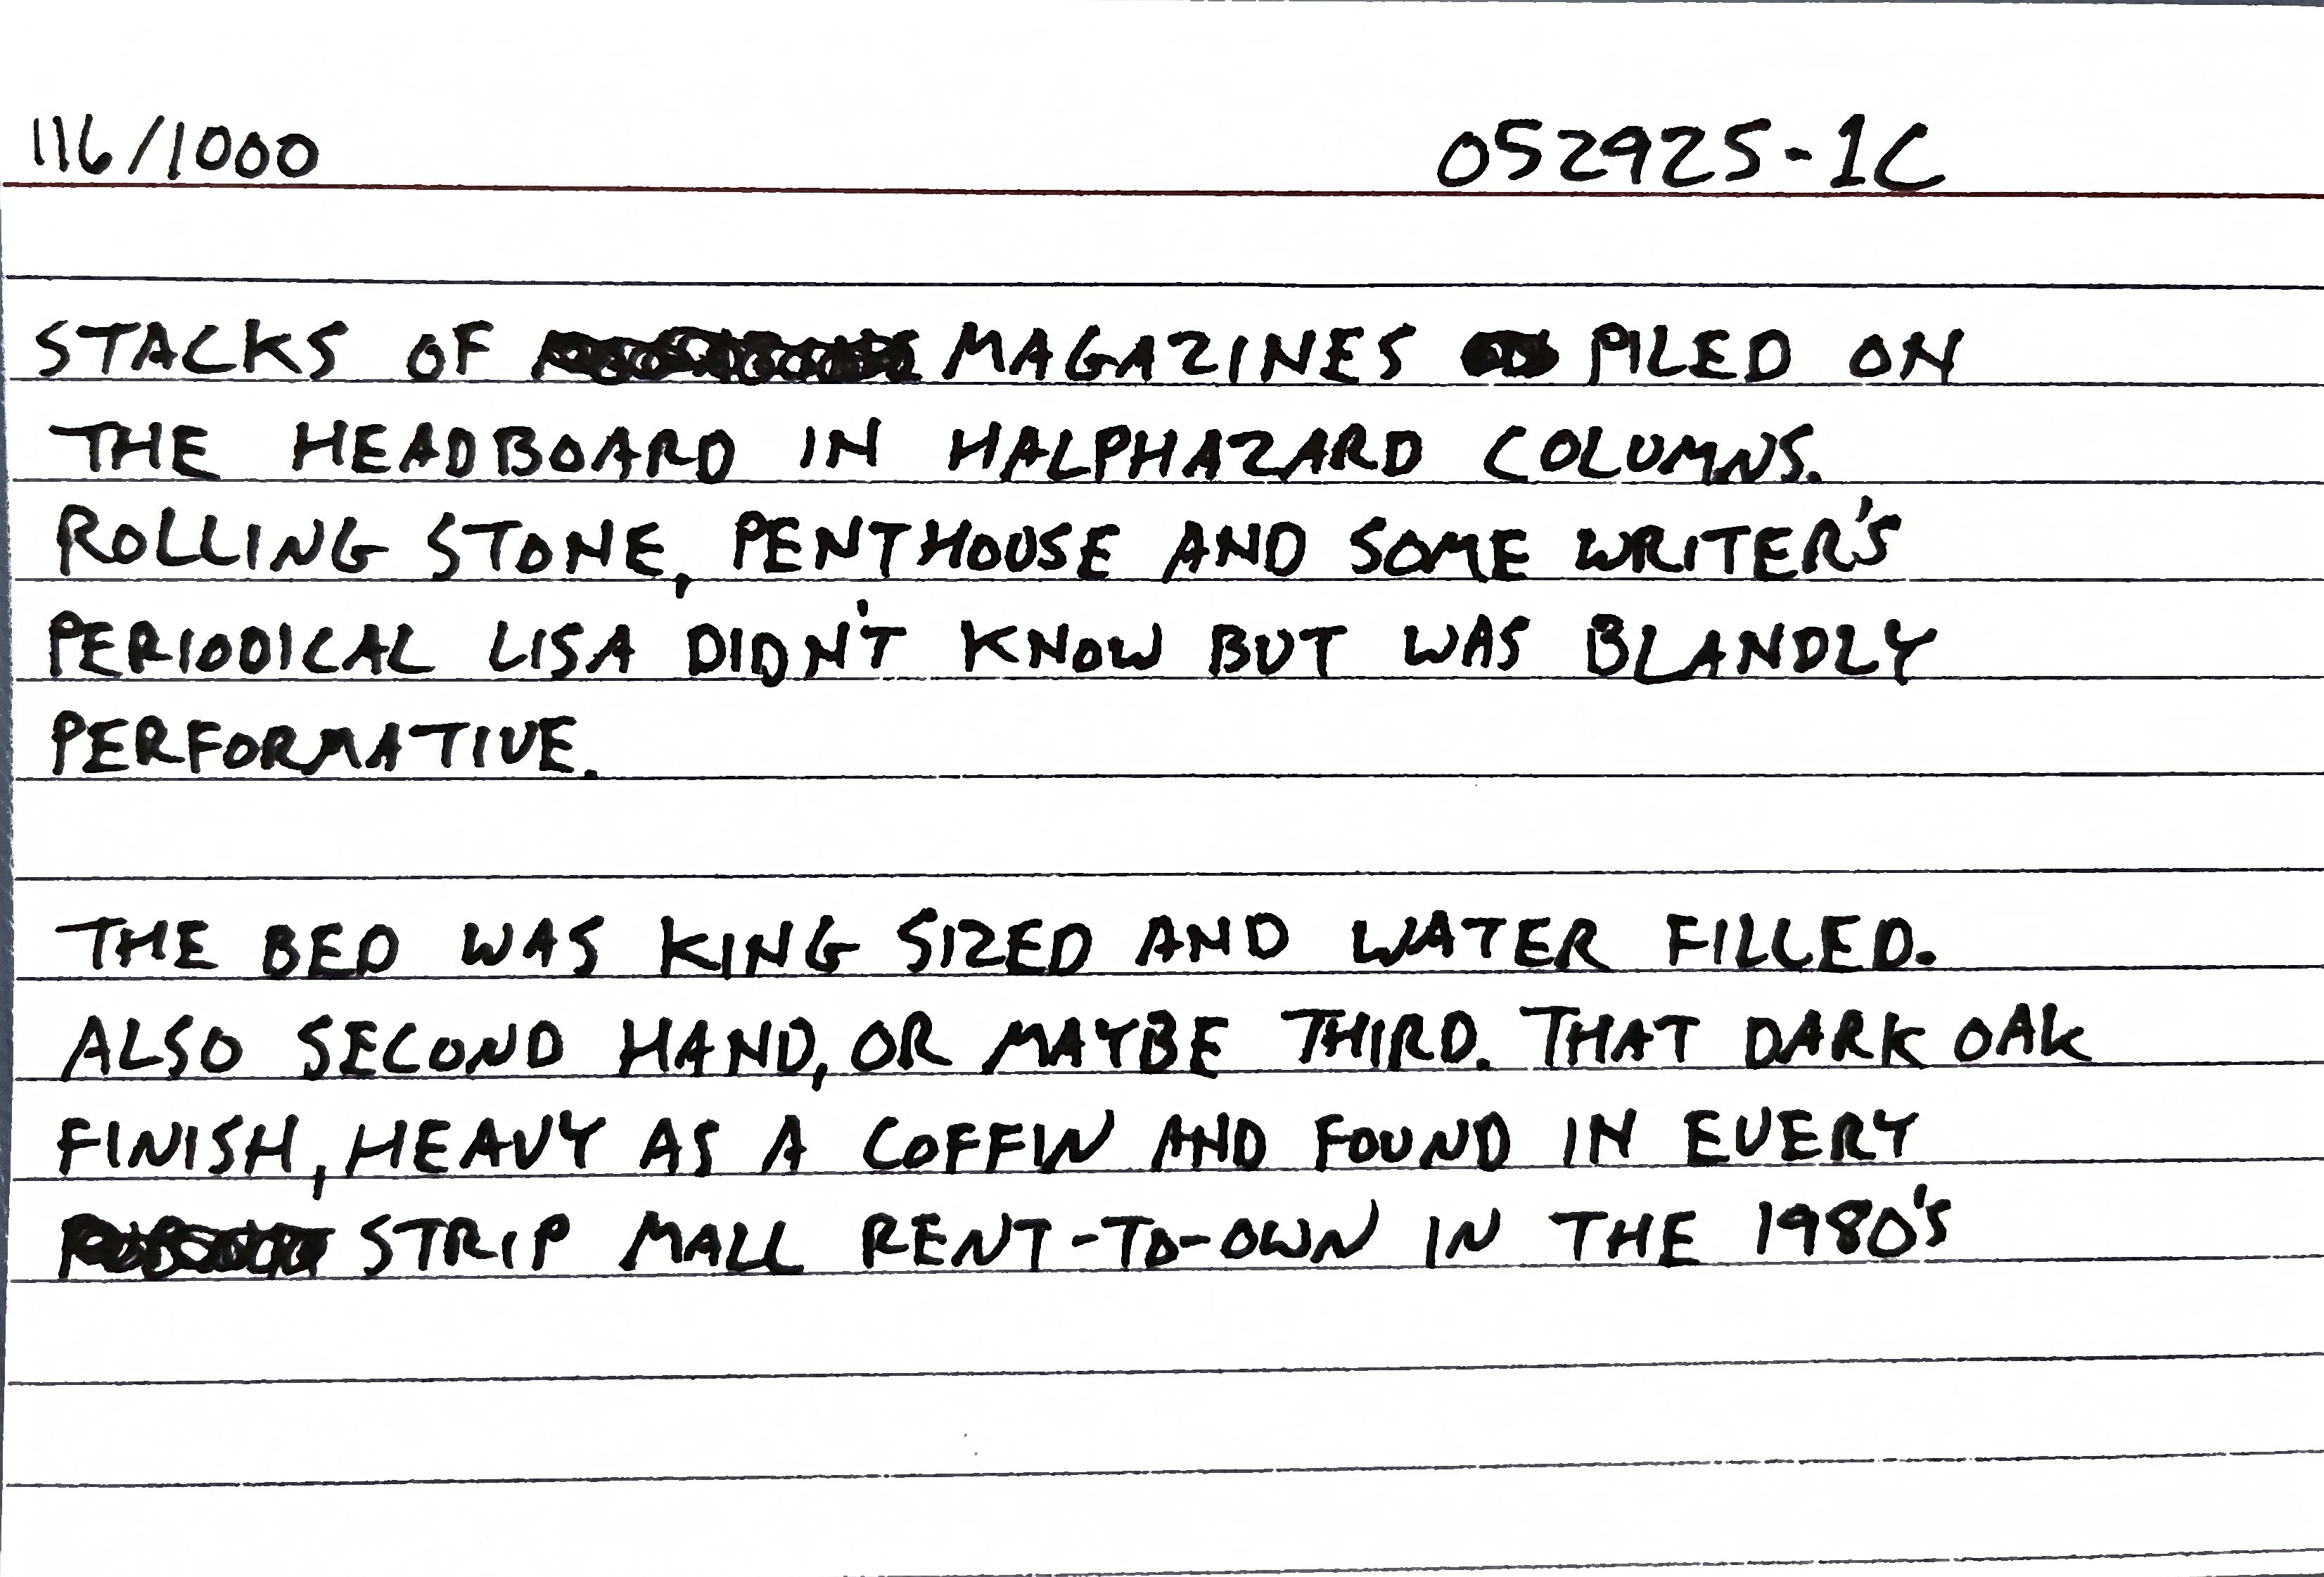 116/1000 052925-1C
STACKS OF MAGAZINES PILED ON
THE HEADBOARD IN HALPHAZARD COLUMNS.
ROLLING STONE, PENTHOUSE AND SOME WRITER'S
PERIODICAL LISA DIDN'T KNOW BUT WAS BLANDLY
PERFORMATIVE.
THE BED WAS KING SIZED AND WATER FILLED.
ALSO SECOND HAND, OR MAYBE THIRD. THAT DARK OAK
FINISH, HEAVY AS A COFFIN AND FOUND IN EVERY
STRIP MALL RENT-TO-OWN IN THE 1980'S